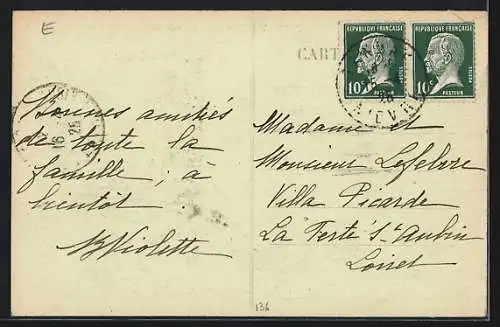 E
CART
RÉPUBLIQUE FRANÇAISE
10c
POSTES
PASTEUR
RÉPUBLIQUE FRANÇAISE
10c
POSTES
PASTEUR
Bonnes amitiés
de toute la
famille ; à
bientôt.
Violette
Madame et
Monsieur Lefebvre
Villa Picarde
La Ferté St Aubin
Loiret
136